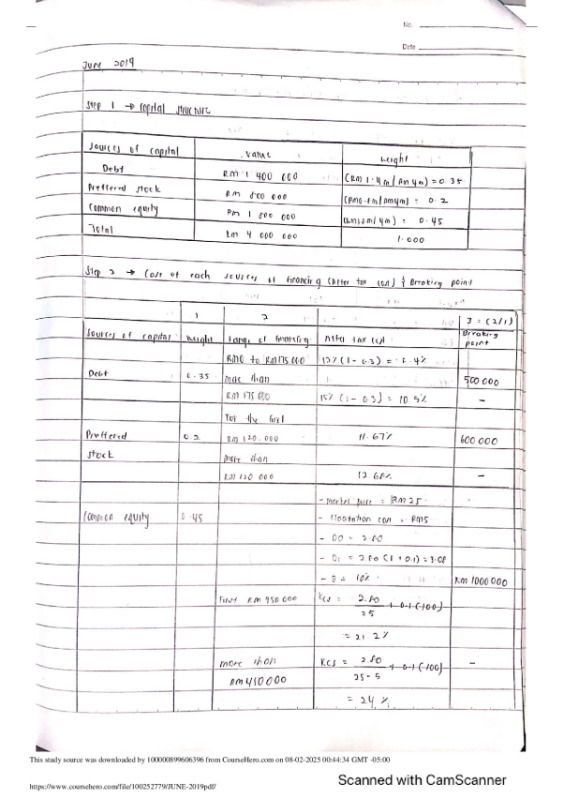 No.
Date
June 2019
Step 1 → Capital structure
Sources of capital Value Weight
Debt RM 1 400 000 (RM 1.4m/RM 4m) = 0.35
Preffered stock RM 800 000 = 0.2
Common equity RM 1 800 000 = 0.45
Total RM 4 000 000 1.000
Step 2 → Cost of each sources of financing (after tax cost) & Breaking point
1 2 3 = (2/1)
Sources of capital Weight Range of financing After tax cost Breaking point
RM0 to RM175 000 12% (1 - 0.3) = 8.4%
Debt 0.35 more than 500 000
RM 175 000 15% (1 - 0.3) = 10.5% -
For the first
Preffered 0.2 RM 120 000 11.67% 600 000
stock more than
RM 120 000 -
- market price = RM25 -
Common equity 0.45 - floatation cost = RM5
- D0 = 2.80
- D1 = 2.80 (1 + 0.1) = 3.08
- g = 10% RM 1000 000
First RM 450 000 Kcs = 2.80 + 0.1 (100)
25
= 21.2%
more than Kcs = 2.80 + 0.1 (100) -
RM 450 000 25 - 5
= 24%
This study source was downloaded by 100000899606396 from CourseHero.com on 08-02-2025 00:44:34 GMT -05:00
Scanned with CamScanner
https://www.coursehero.com/file/100252779/JUNE-2019pdf/